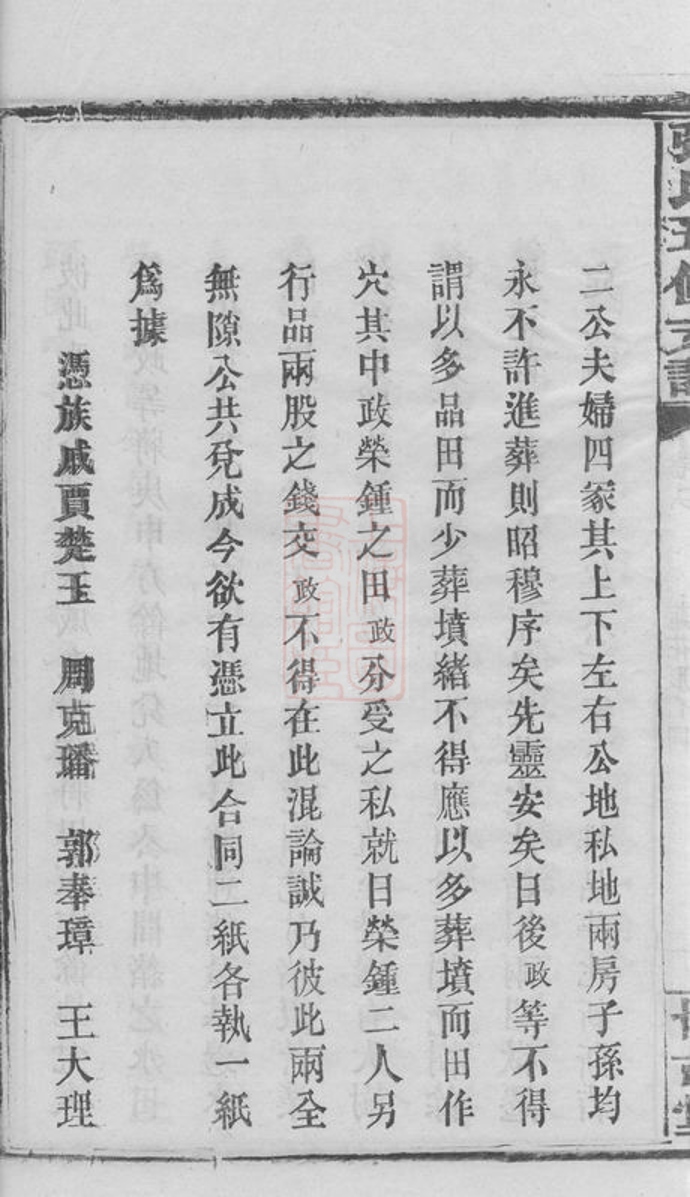 二公夫婦四冢其上下左右公地私地兩房子孫均
永不許進葬則昭穆序矣先靈安矣日後政等不得
謂以多品田而少葬墳緒不得應以多葬墳而田作
穴其中政榮鍾之田政分受之私就日榮鍾二人另
行品兩股之錢交政不得在此混論誠乃彼此兩全
無隙公共兌成今欲有憑立此合同二紙各執一紙
爲據
憑族戚賈楚玉　周克璠　郭奉璋　王大理